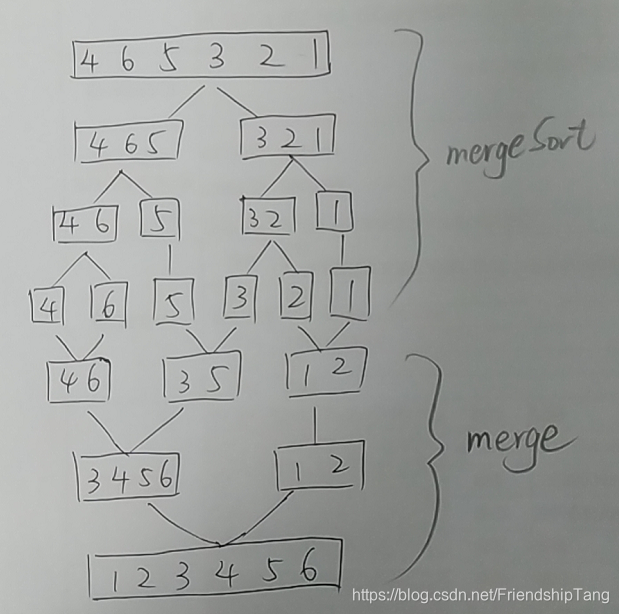 4 6 5 3 2 1
4 6 5 3 2 1
mergeSort
4 6 5 3 2 1
4 6 5 3 2 1
4 6 3 5 1 2
merge
3 4 5 6 1 2
1 2 3 4 5 6
https://blog.csdn.net/FriendshipTang